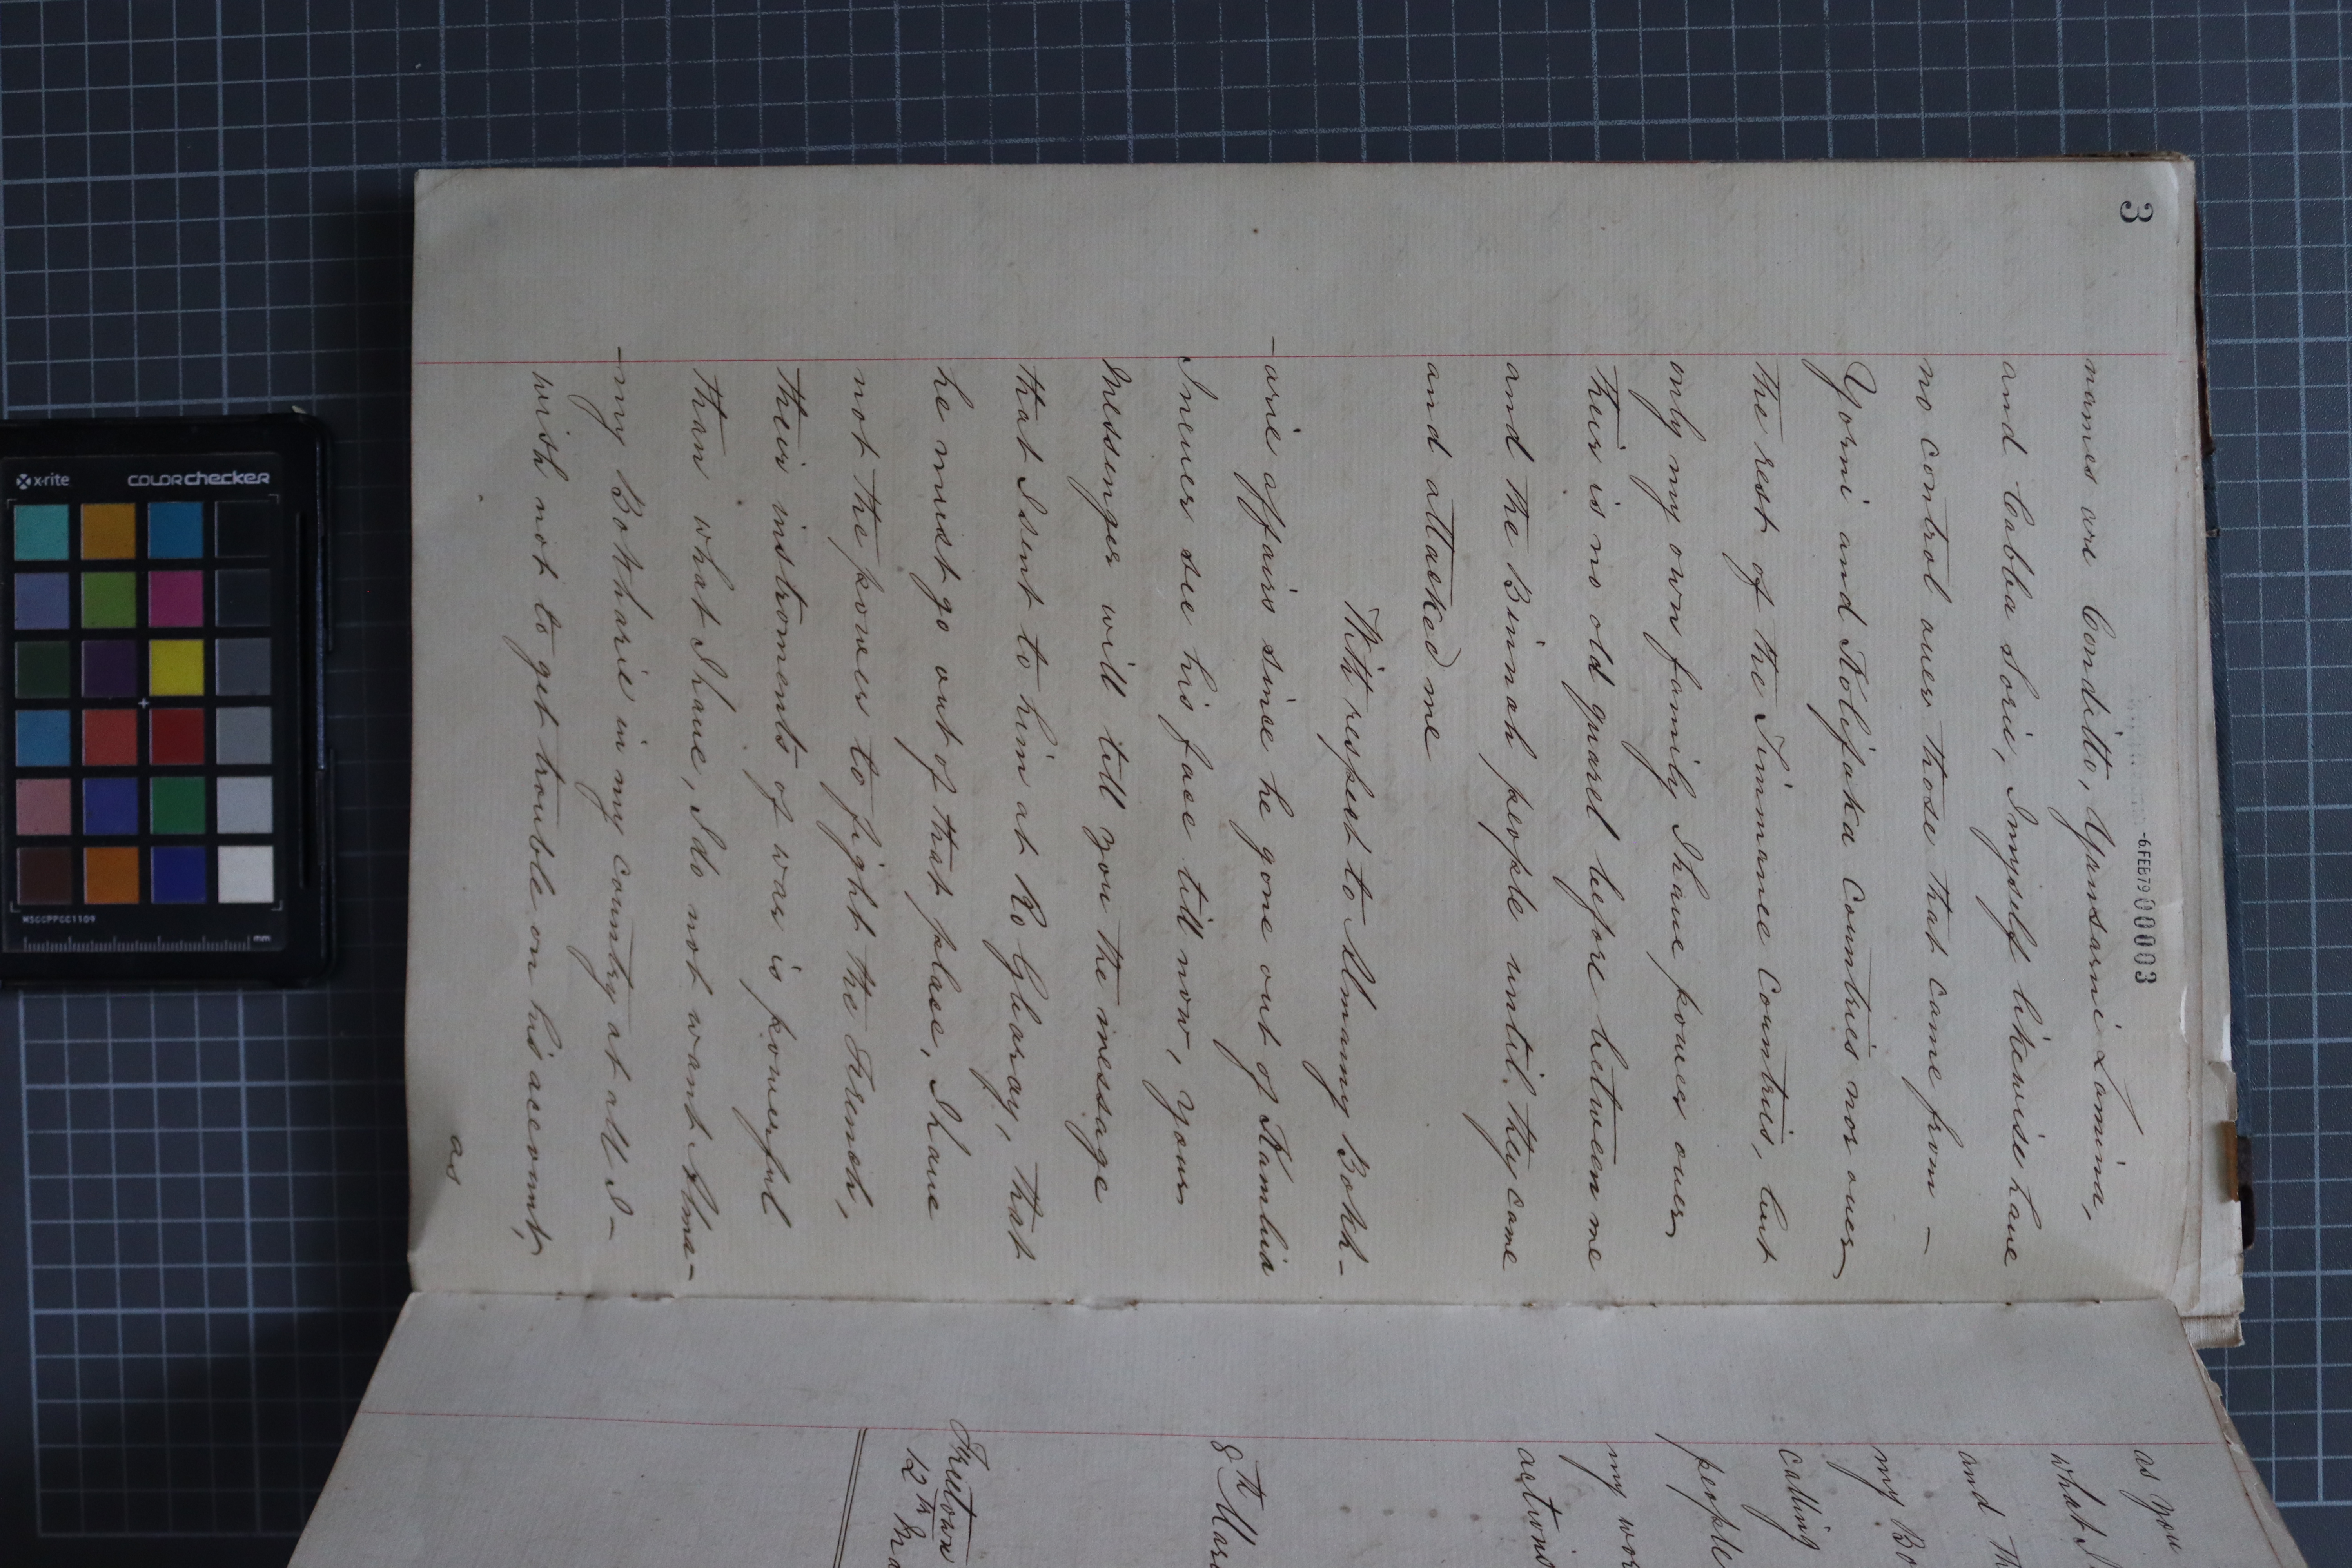 3
-6 FEB 79 000003
names are Conditto, Yansarni Lamina,
and Cabba Sorie, I myself likewise have
no control over those that came from -
Yorni and Kolifaka Countries nor over
the rest of the Timmanee Countries, but
only my own family I have power over
their is no old quarel before between me
and the Binnah people until they come
and attacked me
With respect to Almamy Bokh-
-arie affairs since he gone out of Kambia
I never see his face till now, your
Messenger will tell you the message
that I sent to him at Ro Gbaray, that
he must go out of that place, I have
not the power to fight the French,
their instroments of war is powerful
than what I have, I do not want Alma-
-my Bokharie in my country at all I -
wish not to get trouble on his account,
as
as you
what I
and th
my Bo
calling
people
my wor
actions
8th Marc
Freetown
12th Ma
x-rite
colorchecker
MSCCPPCC1109
mm